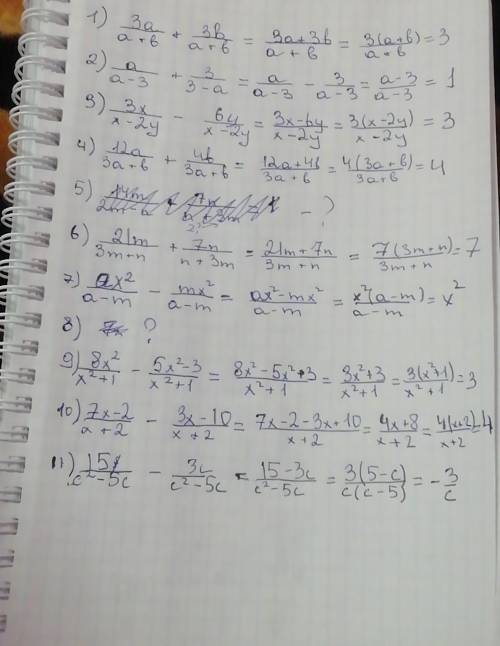 1) 3a/(a+b) + 3b/(a+b) = (3a+3b)/(a+b) = 3(a+b)/(a+b) = 3
2) a/(a-3) + 3/(3-a) = a/(a-3) - 3/(a-3) = (a-3)/(a-3) = 1
3) 3x/(x-2y) - 6y/(x-2y) = (3x-6y)/(x-2y) = 3(x-2y)/(x-2y) = 3
4) 12a/(3a+b) + 4b/(3a+b) = (12a+4b)/(3a+b) = 4(3a+b)/(3a+b) = 4
5) - ?
6) 21m/(3m+n) + 7n/(n+3m) = (21m+7n)/(3m+n) = 7(3m+n)/(3m+n) = 7
7) ax²/(a-m) - mx²/(a-m) = (ax²-mx²)/(a-m) = x²(a-m)/(a-m) = x²
8) 7x ?
9) 8x²/(x²+1) - (5x²-3)/(x²+1) = (8x²-5x²+3)/(x²+1) = (3x²+3)/(x²+1) = 3(x²+1)/(x²+1) = 3
10) (7x-2)/(a+2) - (3x-10)/(x+2) = (7x-2-3x+10)/(x+2) = (4x+8)/(x+2) = 4(x+2)/(x+2) = 4
11) 15/(c²-5c) - 3c/(c²-5c) = (15-3c)/(c²-5c) = 3(5-c)/(c(c-5)) = -3/c